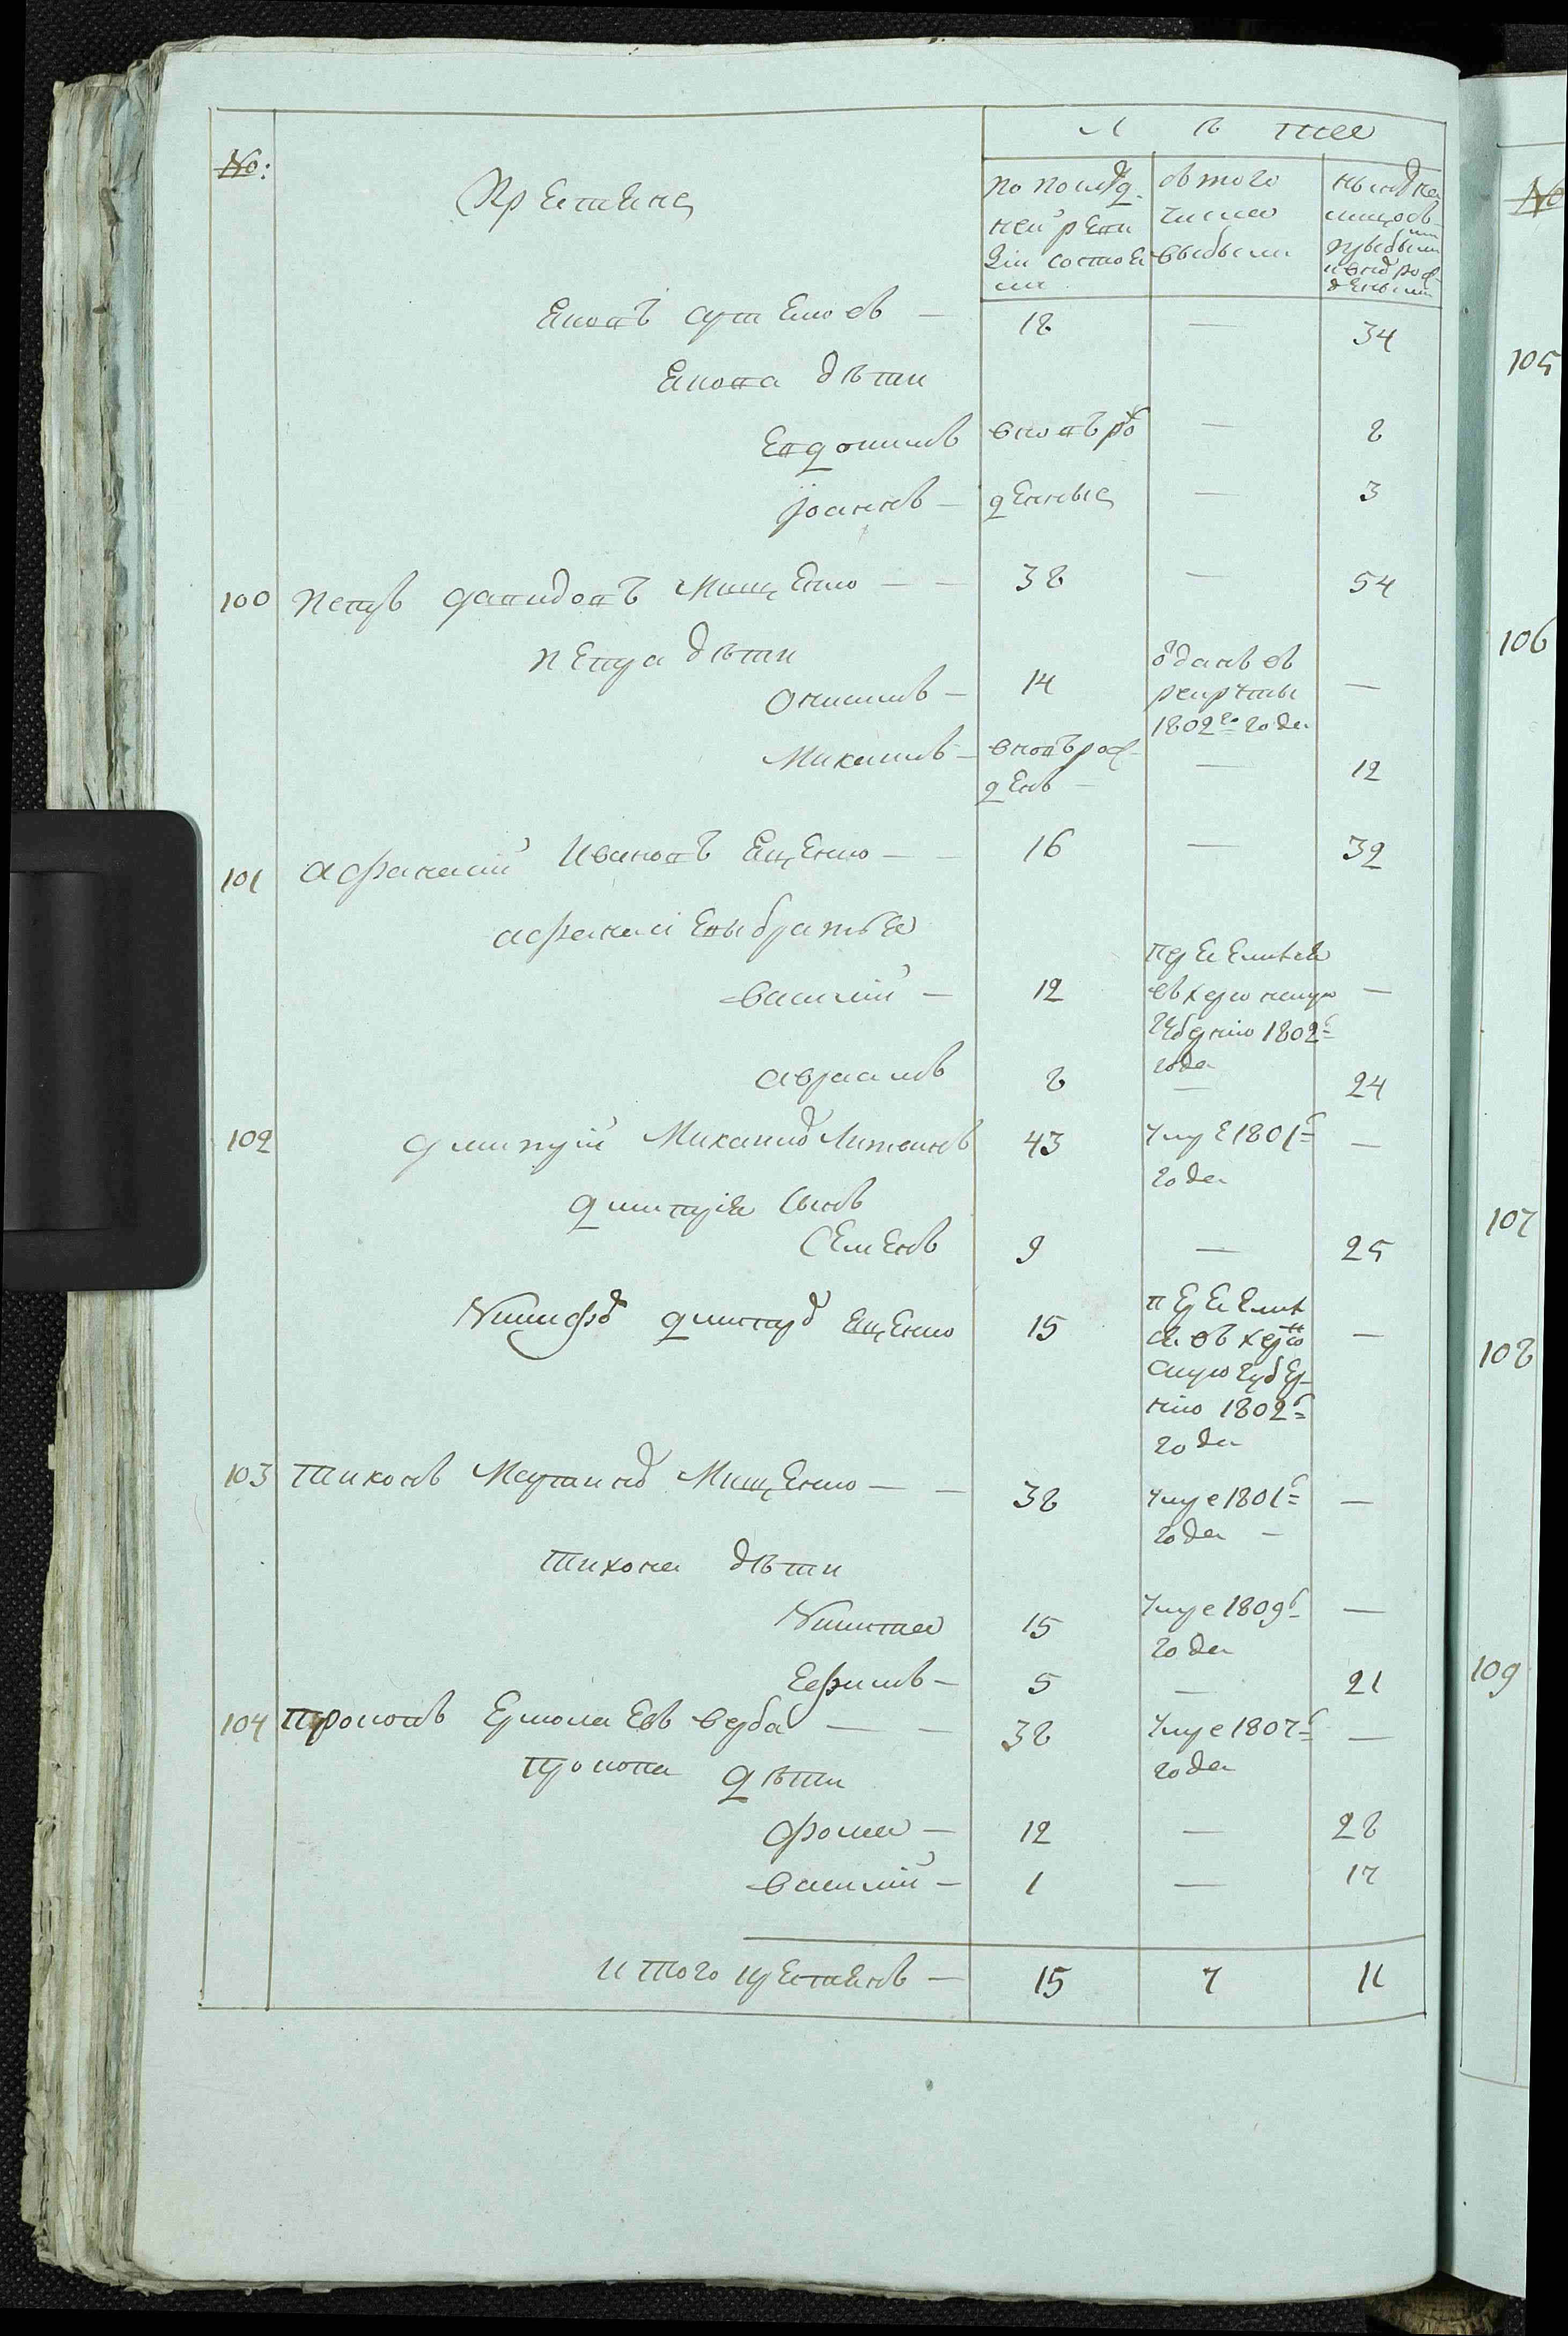 Лѣта
№:
Крестьяне
по послѣд-
ней реви
зіи состоя
ли
изъ того
числа
выбыли
нынѣ на
лицо съ
прибылыми
и внов рож
денными
Яковъ Артемовъ — 18 — 34
Якова дѣти
Евдокимъ вновь ро — 8
Іоаннъ — жденные — 3
100 Петръ Давидовъ Мищенко — — 38 — 54
Петра дѣти
Онисимъ — 14 отданъ въ рекруты 1802го года —
Михаилъ — вновь рож-
денъ — — 12
101 Афанасій Ивановъ Ященко — — 16 — 32
Афанасіевы братья
Василій — 12 переселился
въ Херсонскую —
губернію 1802го
года
Авраамъ 8 — 24
102 Дмитрій Михайлов Литвинъ 43 умре 1801го —
года
Дмитрія сынъ
Семенъ 9 — 25
Никифоръ Дмитров Ященко 15 переселил
ся въ Херсон —
скую губер-
нію 1802го
года
103 Тихонъ Мартинов Мищенко — — 38 умре 1801го —
года —
Тихона дѣти
Никита 15 умре 1809го —
года
Ефимъ — 5 — 21
104 Прокопъ Ермолаевъ Верба — — 38 умре 1807го —
года
Прокопа дѣти
Фома — 12 — 28
Василій — 1 — 17
Итого крестьянъ — 15 7 11
№
105
106
107
108
109